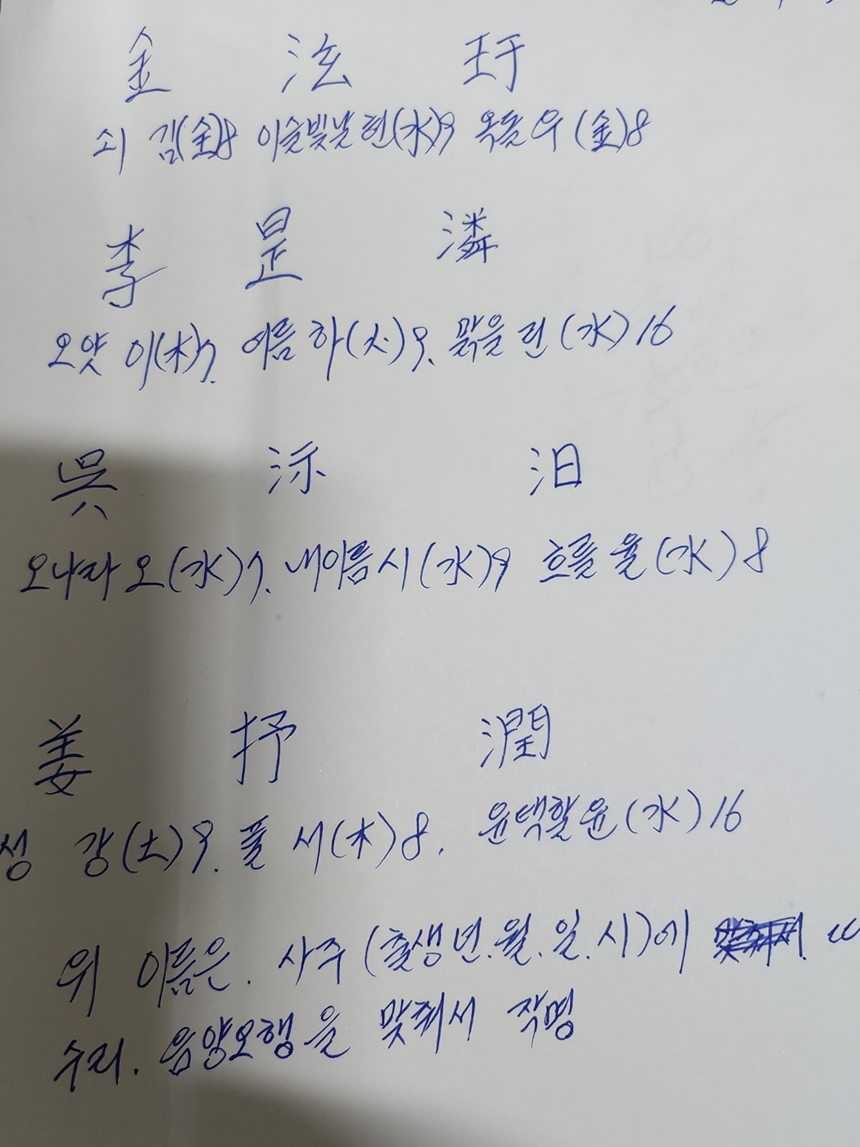 金 泫 玗
쇠 김(金)8 이슬빛날 현(水)9 옥돌 우(金)8
李 昰 潾
오얏 이(木)7. 여름 하(火)9. 맑을 린(水)16
吳 沶 汨
오나라 오(水)7. 내이름 시(水)9 흐를 율(水)8
姜 抒 潤
성 강(土)9. 풀 서(木)8. 윤택할 윤(水)16
위 이름은. 사주(출생년.월.일.시)에
수리. 음양오행을 맞춰서 작명